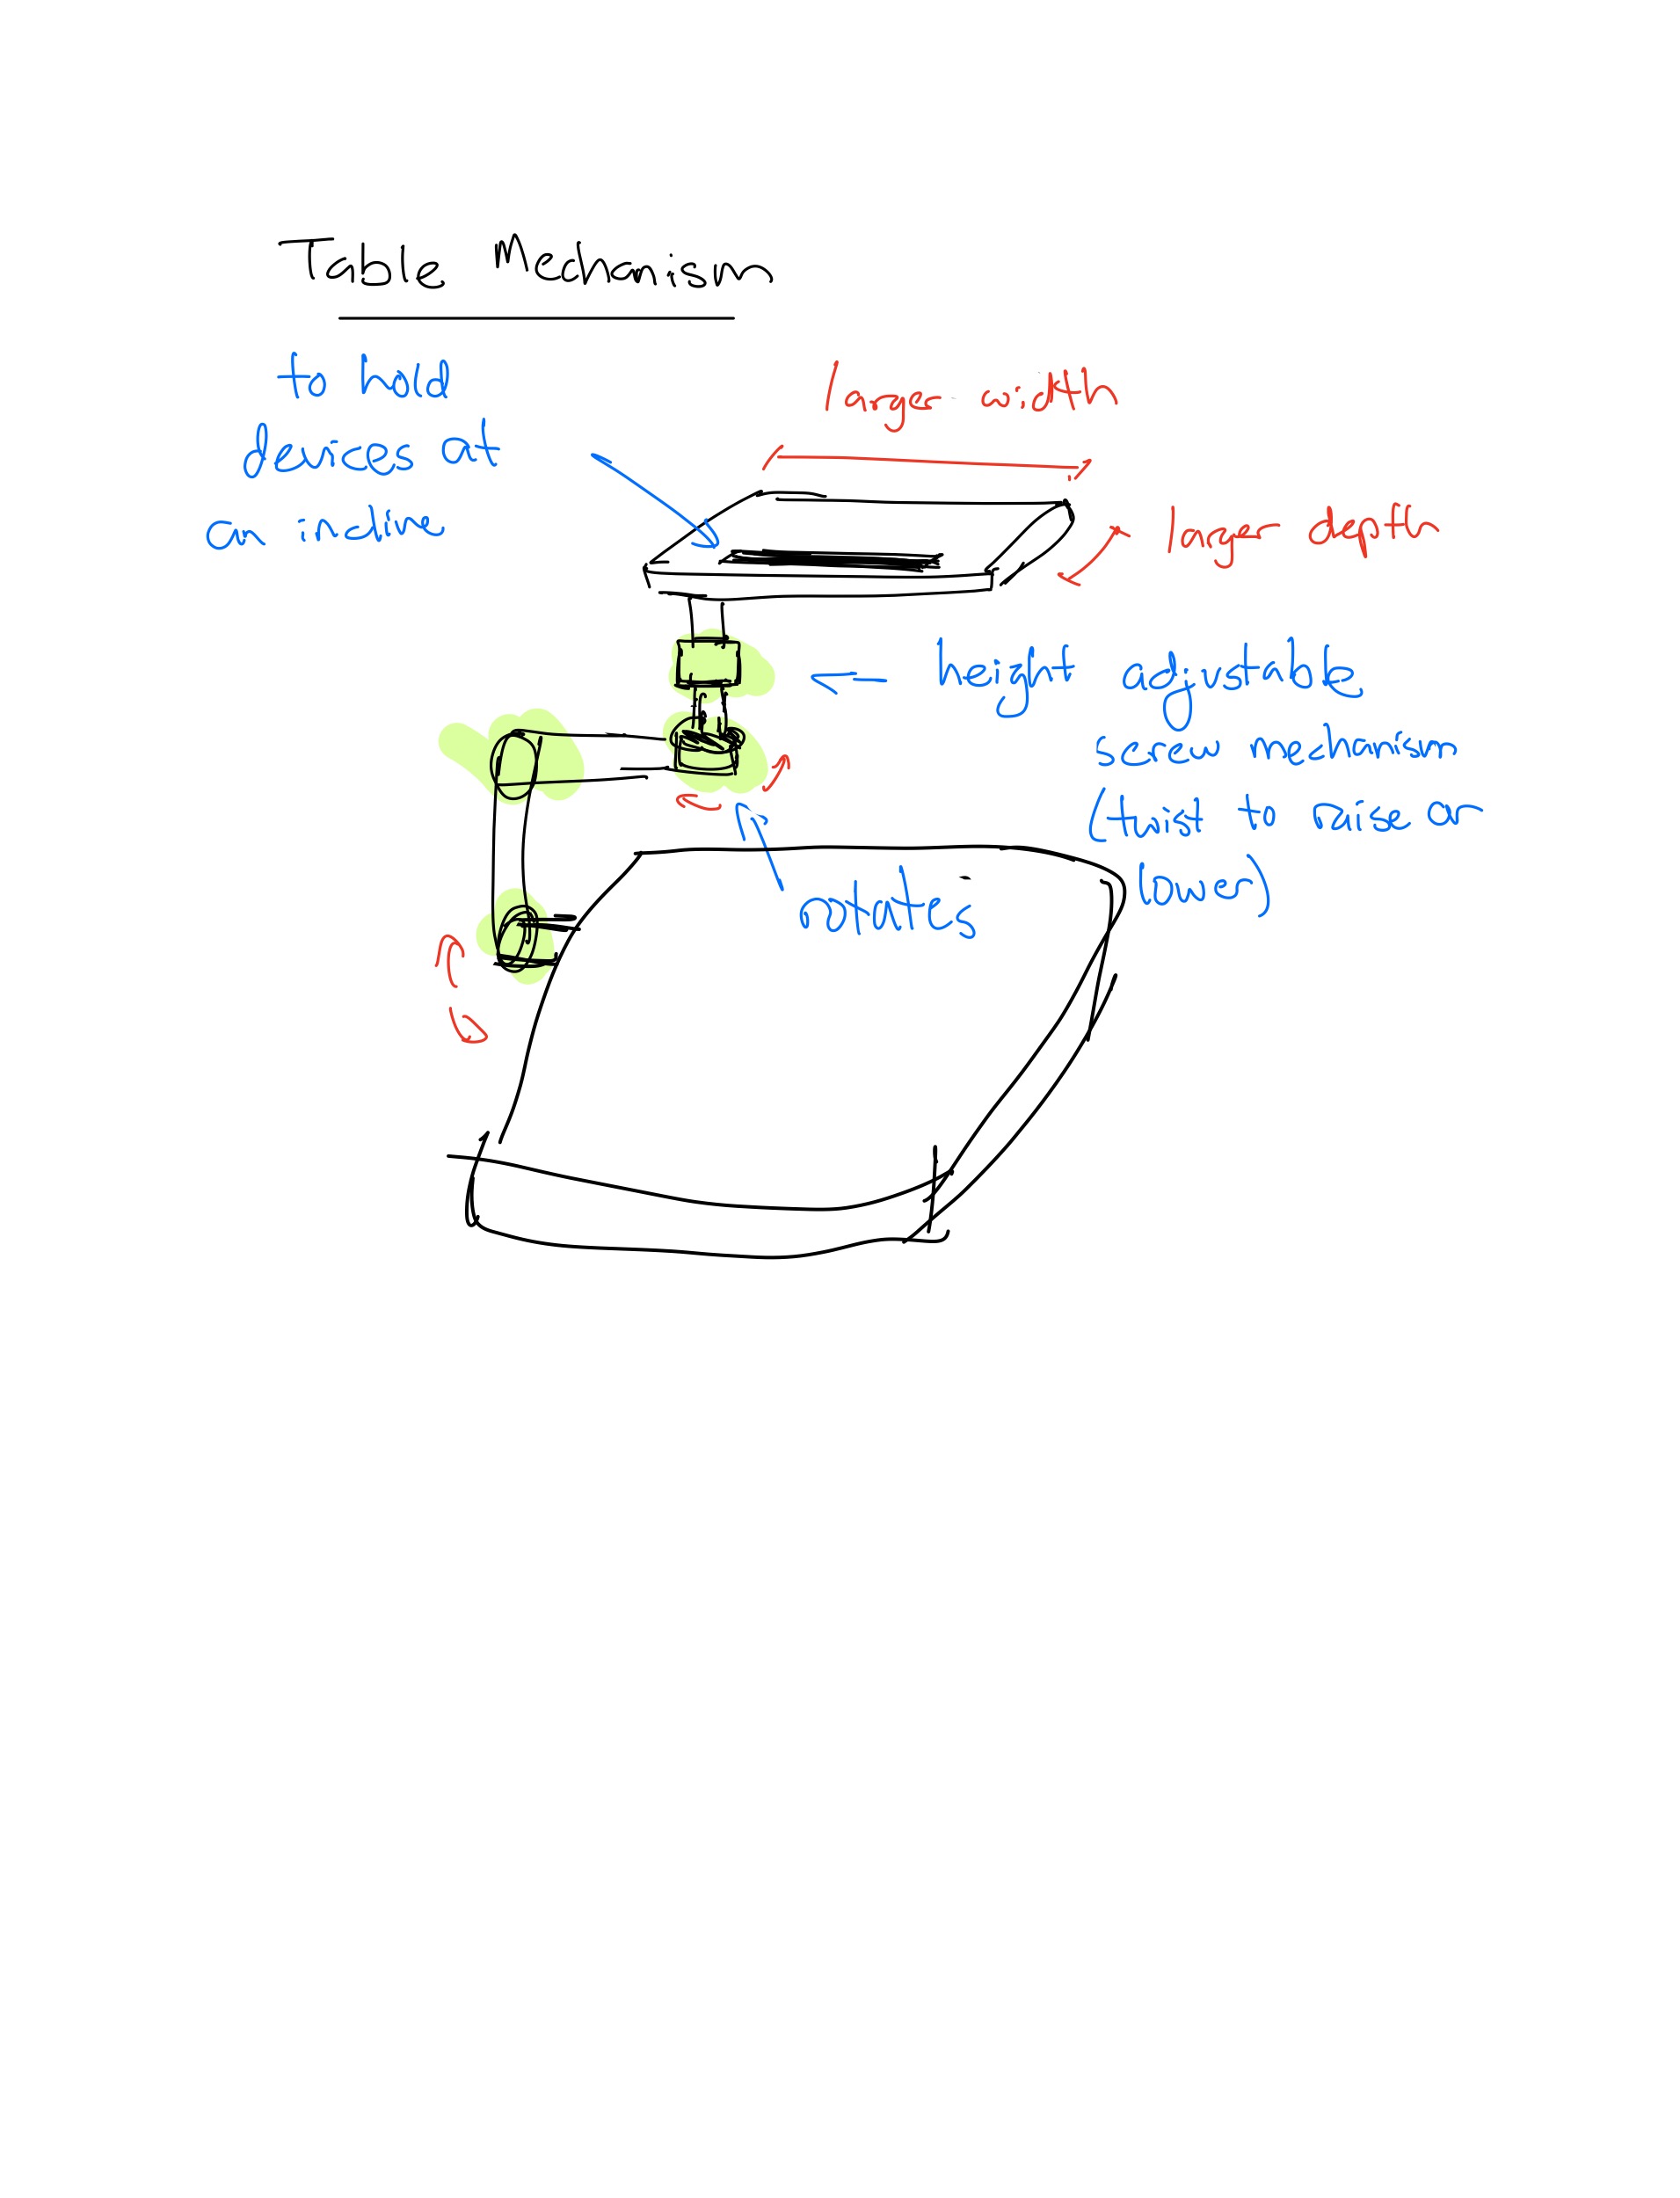 Table Mechanism
to hold
devices at
an incline
larger width
larger depth
height adjustable
screw mechanism
(twist to raise or
lower)
rotates